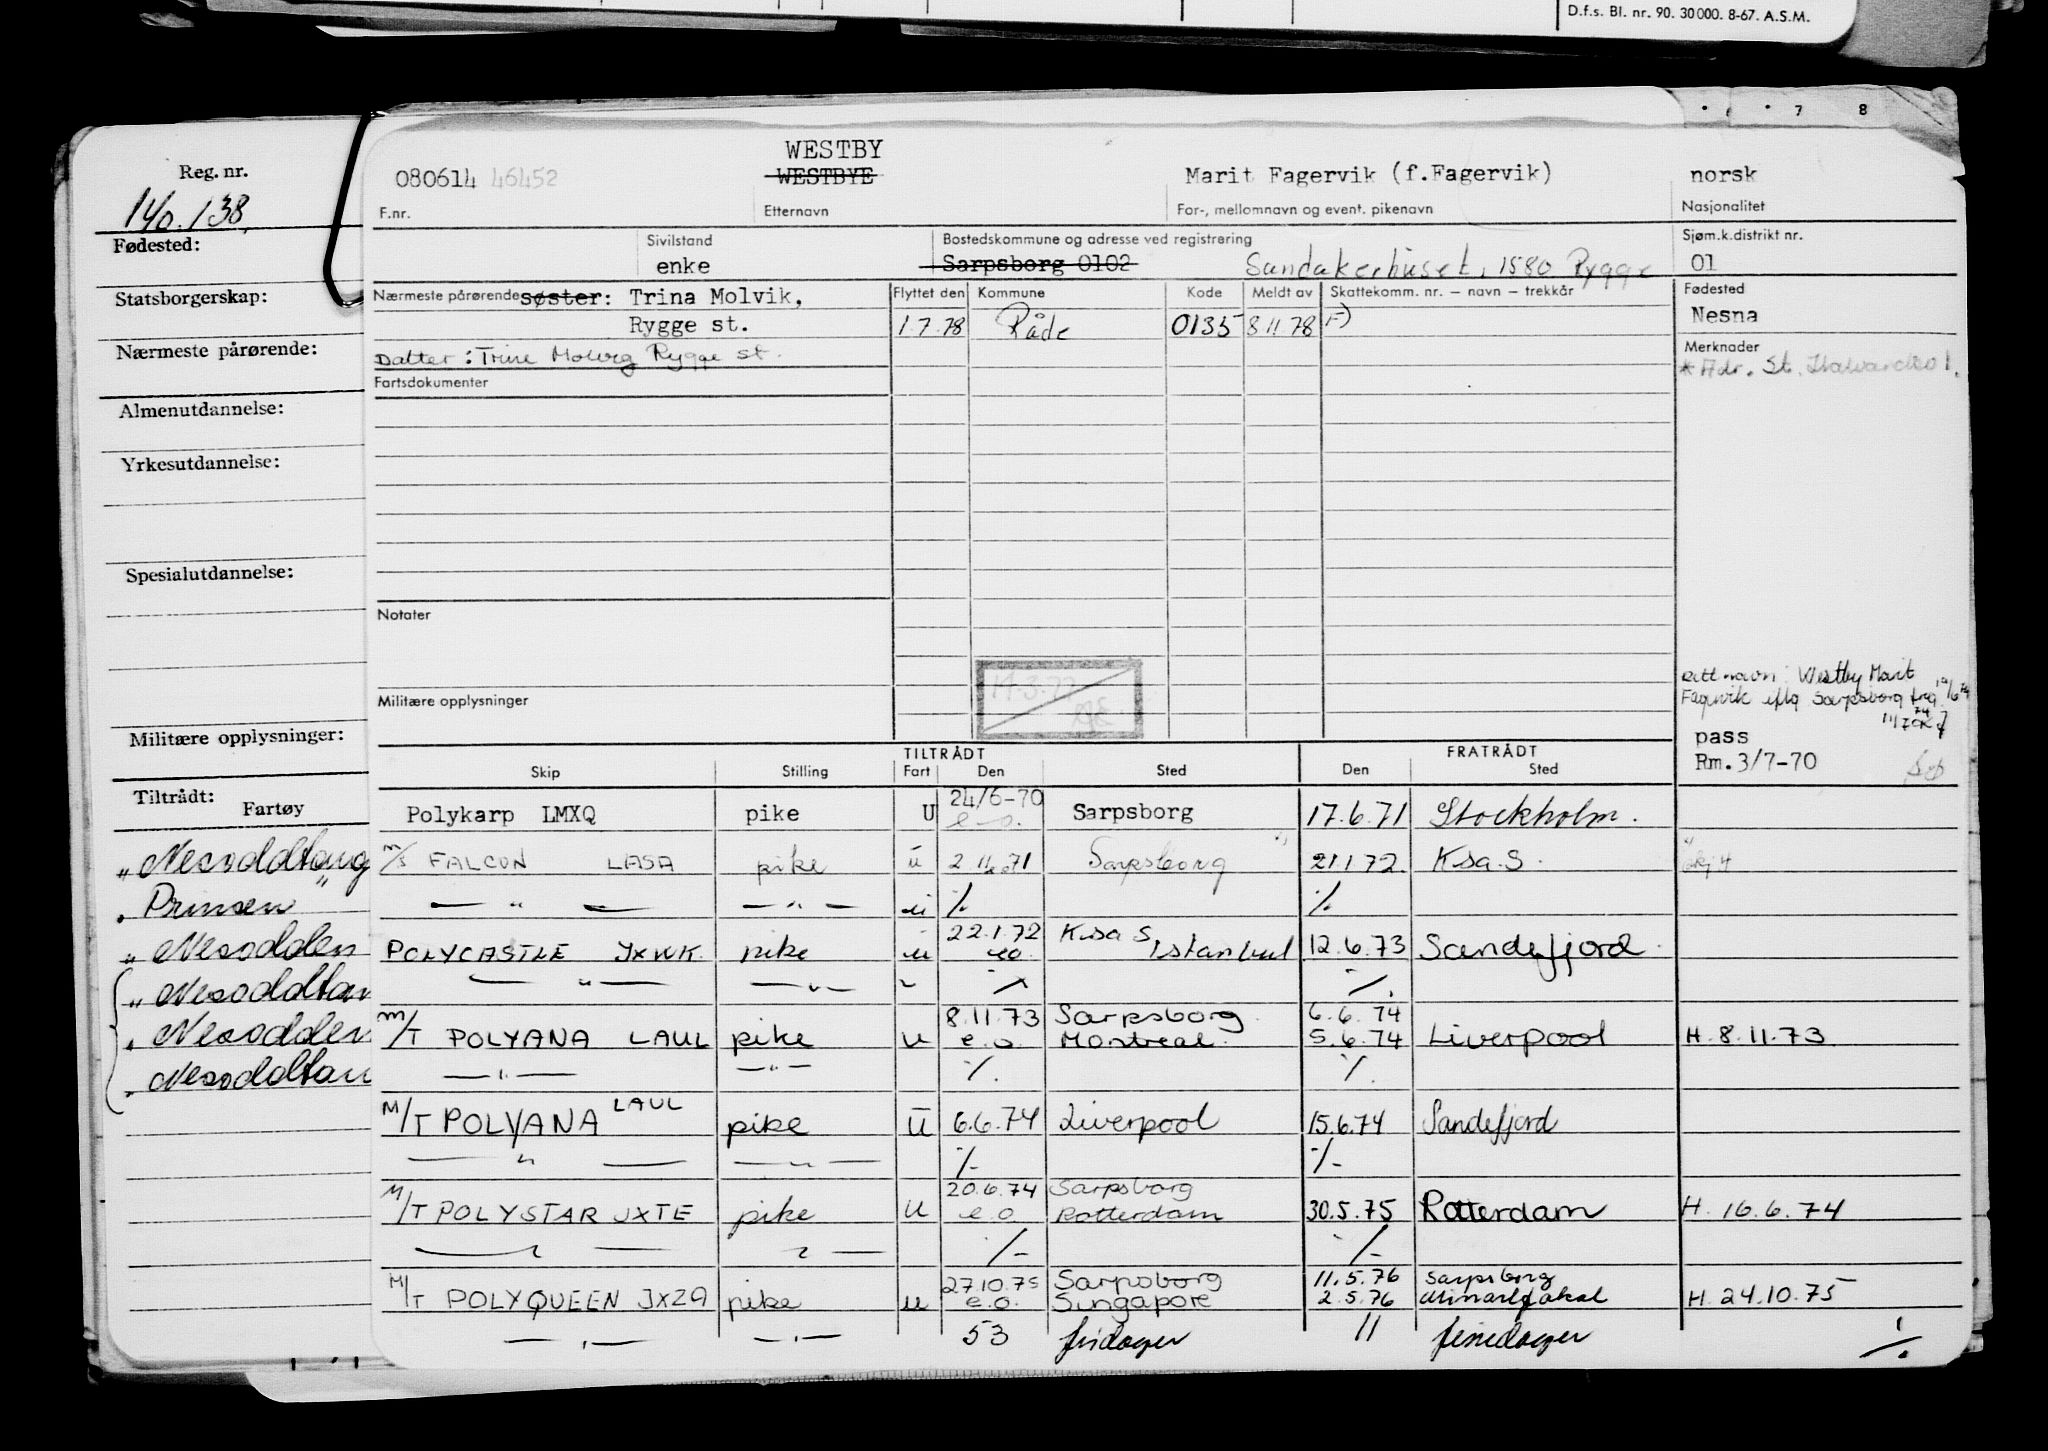 D.f.s. Bl. nr. 90. 30 000. 8-67. A.S.M.
7 8
Reg. nr.
140.138.
Fødested:
Statsborgerskap:
Nærmeste pårørende:
Almenutdannelse:
Yrkesutdannelse:
Spesialutdannelse:
Militære opplysninger:
Tiltrådt:
Fartøy
„ Nesoddtang
„ Prinsen
„ Nesodden
„ Nesoddtan
„ Nesodden
„ Nesoddtan
WESTBY
080614 46452 WESTBYE Marit Fagervik (f.Fagervik) norsk
F.nr. Etternavn For-, mellomnavn og event. pikenavn Nasjonalitet
Sivilstand Bostedskommune og adresse ved registrering Sjøm.k.distrikt nr.
enke Sarpsborg 0102 Sandakerhuset, 1580 Rygge 01
Nærmeste pårørende søster: Trina Molvik, Flyttet den Kommune Kode Meldt av Skattekomm. nr. – navn – trekkår Fødested
Rygge st. 1.7.78 Råde 0135 8 11 78 F) Nesna
Datter: Trine Molvig Rygge st. Merknader
Fartsdokumenter * Adr. St.
Notater
Rett navn: Westby Marit
Fagervik iflg Sarpsborg
Militære opplysninger 17-3.77
pass
Rm. 3/7-70
TILTRÅDT FRATRÅDT
Skip Stilling Fart Den Sted Den Sted
Polykarp LMXQ pike U 24/6-70 e.o. Sarpsborg 17.6.71 Stockholm.
M/S FALCON LASA pike u 2 11 71 Sarpsborg 21.1.72. Ksa. S.
— „ — — „ — u ·/. ·/.
POLYCASTLE JXWK. pike u 22.1.72 eo. K.sa S. Istanbul 12.6.73 Sandefjord.
— „ — — „ — ·/. ·/.
8.11.73 Sarpsborg. 6.6.74
M/T POLYANA LAUL pike u e.o. Montreal. 5.6.74 Liverpool H. 8.11.73
— „ — — „ — ·/. ·/.
M/T POLYANA LAUL pike U 6.6.74 Liverpool 15.6.74 Sandefjord
— „ — — „ — ·/- ·/-
20.6.74 Sarpsborg
M/T POLYSTAR JXTE pike u e.o Rotterdam 30.5.75 Rotterdam H. 16.6.74
— „ — — „ — ·/- ·/-
27.10.75 Sarpsborg 11.5.76 Sarpsborg
M/T POLYQUEEN JXZA pike u e.o. Singapore 2.5.76 H. 24.10.75
— „ — — „ — 53 fridager 11 feriedager ·/.